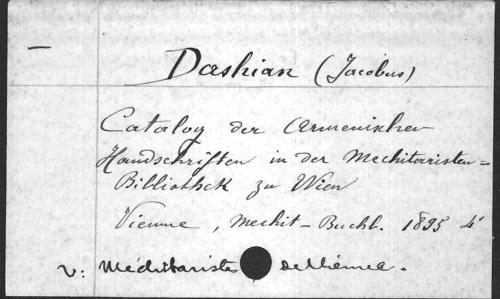 Dashian (Jacobus)
Catalog der Armenischen
Handschriften in der Mechitaristen=
Bibliothek zu Wien
Vienne, Mechit-Buchh. 1895 4°
V: Méchitariste de Vienne.